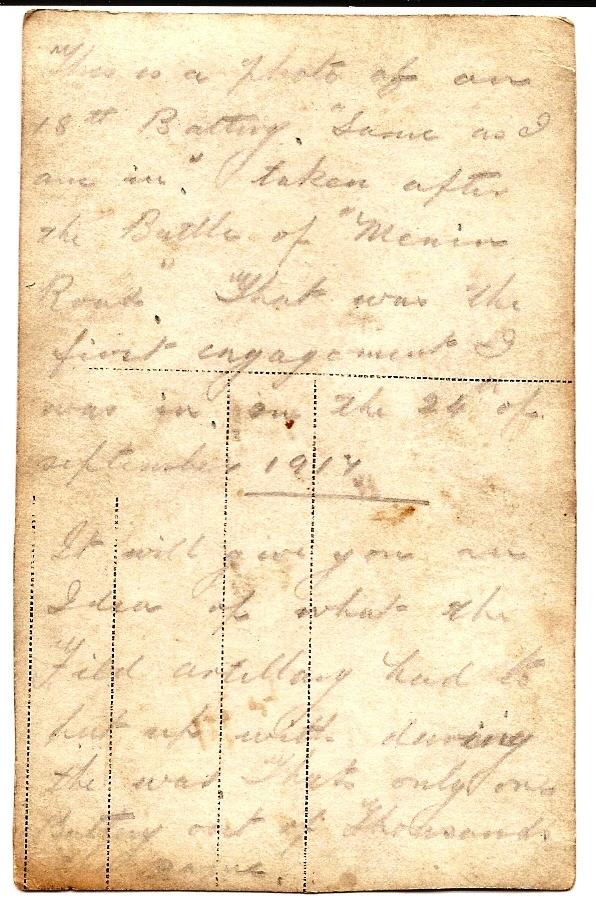 This is a photo of an
18th Battery. "Same as I
am in" taken after
the Battle of "Menin
Road" That was the
first engagement I
was in, on the 24th of
september 1917
It will give you an
Idea of what the
Field artillary had to
put up with during
the war That's only one
Battery out of Thousands